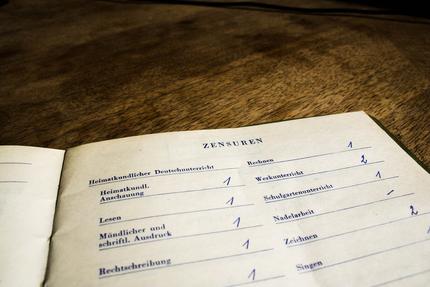 ZENSUREN
Heimatkundlicher Deutschunterricht
Heimatkundl.
Anschauung 1
Lesen 1
Mündlicher und
schriftl. Ausdruck 1
Rechtschreibung 1
Rechnen 1
Werkunterricht 2
Schulgartenunterricht 1
Nadelarbeit –
Zeichnen 2
Singen